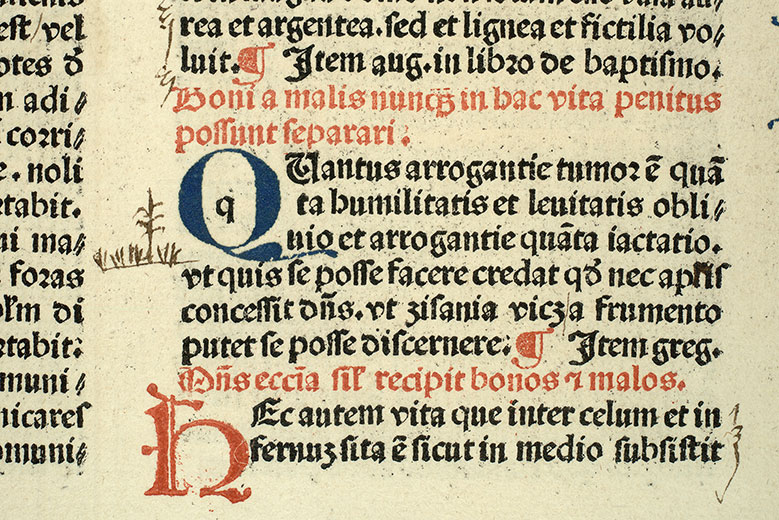 est/vel
otes ꝺ̄
n adi⸗
corri
e. noli
etabit.
ni ma⸗
foras
di
rtabit:
muni⸗
nicares
omuni⸗
rea et argentea. sed et lignea et fictilia vo⸗
luit. ¶ Item aug. in libro de baptismo.
Boni a malis nunqȝ in hac vita penitus
possunt separari.
QUantus arrogantie tumor ē quā
q
ta humilitatis et leuitatis obli⸗
uio et arrogantie quāta iactatio.
vt quis se posse facere credat qd̄ nec aplis
concessit dn̄s. vt zisania vicȝ a frumento
putet se posse discernere. ¶ Item greg.
Dn̄s eccīa sil̄ recipit bonos ⁊ malos.
HEc autem vita que inter celum et in
fernuȝ sita ē sicut in medio subsistit